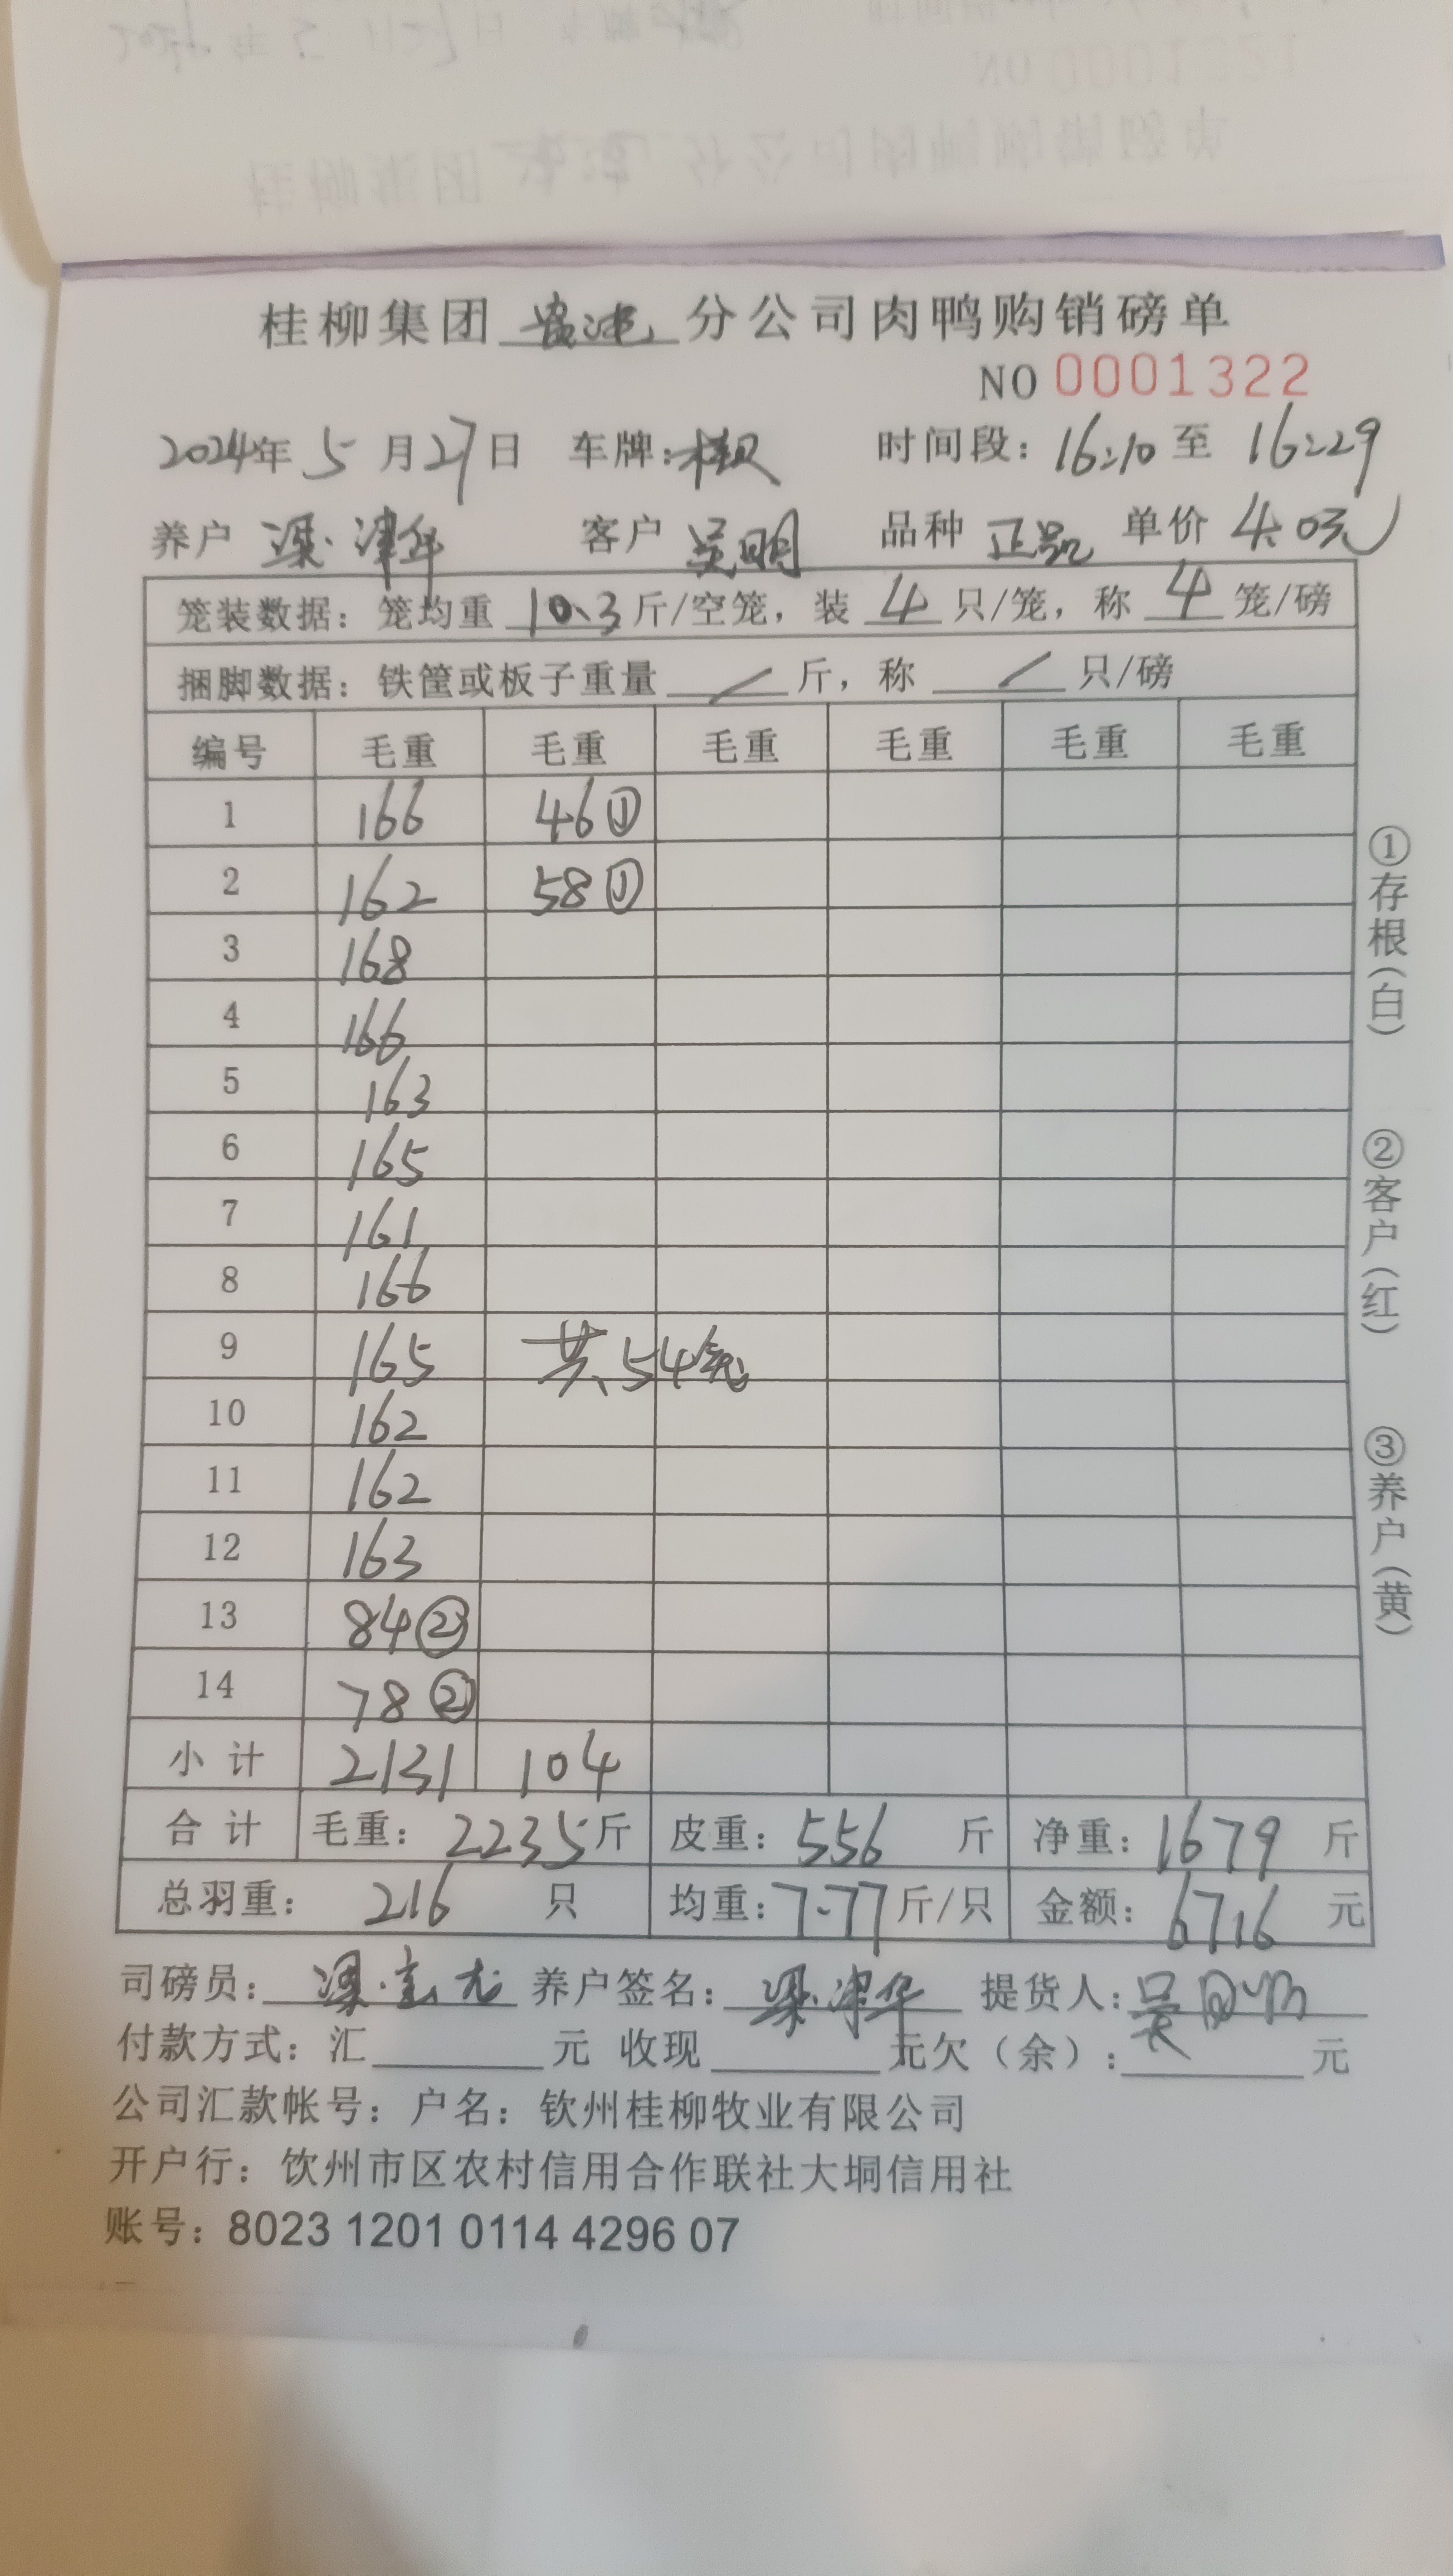 桂柳集团 分公司肉鸭购销磅单
NO 0001322
2024年 5 月 27 日 车牌: 时间段: 16:10 至 16:29
养户 梁津华 客户 吴明 品种 正品 单价 4.0元
笼装数据: 笼均重 10.3 斤/空笼, 装 4 只/笼, 称 4 笼/磅
捆脚数据: 铁筐或板子重量 / 斤, 称 / 只/磅
编号 毛重 毛重 毛重 毛重 毛重 毛重
1 166 46①
2 162 58①
3 168
4 166
5 163
6 165
7 161
8 166
9 165 共54笼
10 162
11 162
12 163
13 84②
14 78②
小计 2131 104
合计 毛重: 2235 斤 皮重: 556 斤 净重: 1679 斤
总羽重: 216 只 均重: 7.77 斤/只 金额: 6716 元
司磅员: 养户签名: 梁津华 提货人: 吴
付款方式: 汇 元 收现 元欠(余): 元
公司汇款帐号: 户名: 钦州桂柳牧业有限公司
开户行: 饮州市区农村信用合作联社大垌信用社
账号: 8023 1201 0114 4296 07
①存根(白)
②客户(红)
③养户(黄)